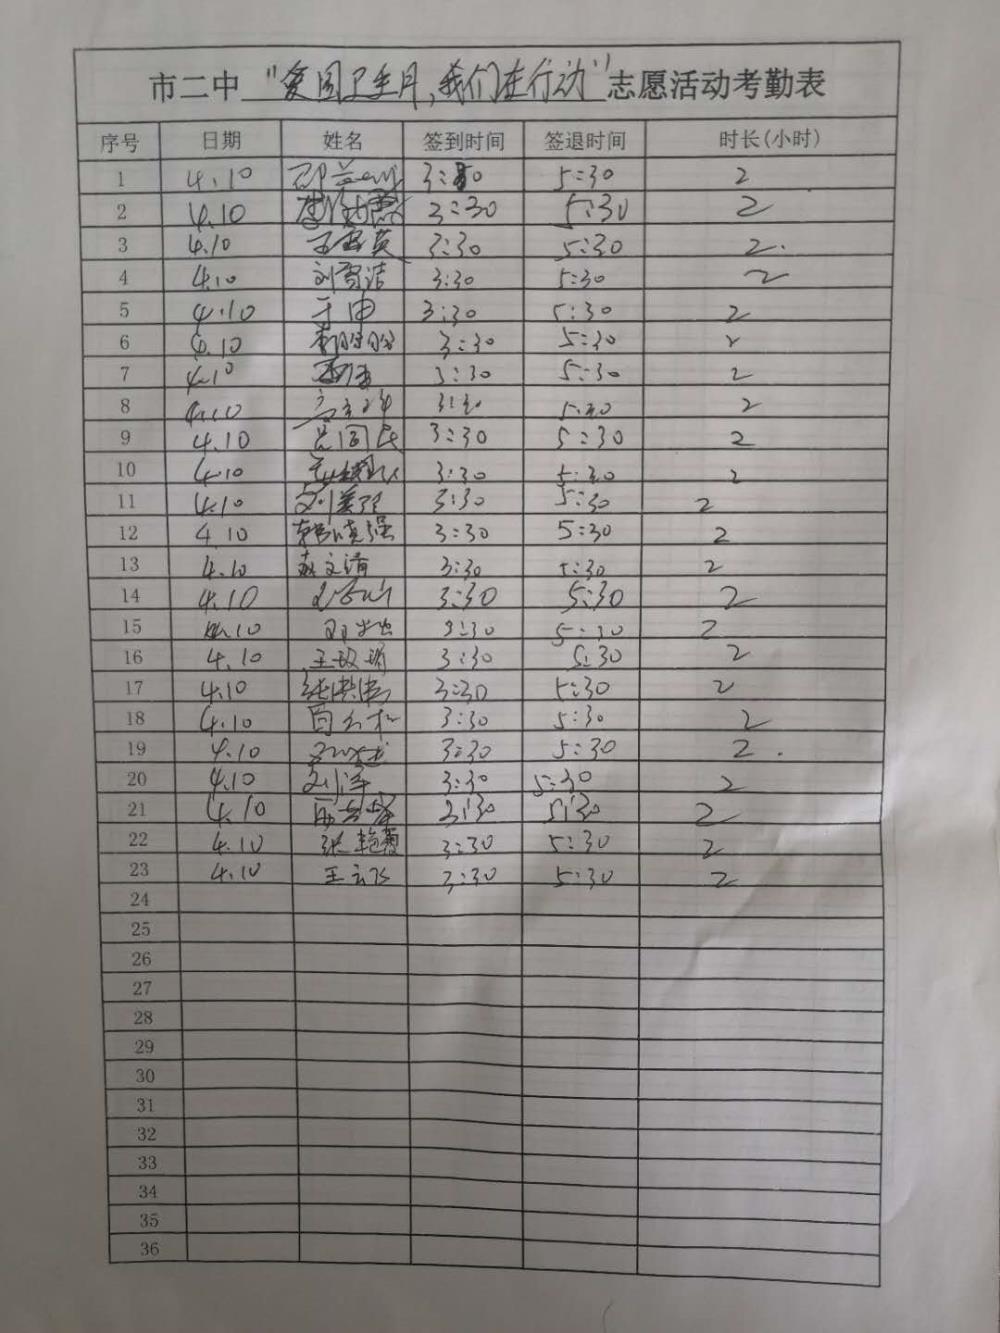 市二中"爱国卫生月,我们在行动"志愿活动考勤表
序号 日期 姓名 签到时间 签退时间 时长(小时)
1 4.10 3:30 5:30 2
2 4.10 3:30 5:30 2
3 4.10 3:30 5:30 2.
4 4.10 刘雪洁 3:30 5:30 2
5 4.10 于申 3:30 5:30 2
6 4.10 3:30 5:30 2
7 4.10 3:30 5:30 2
8 4.10 3:30 5:30 2
9 4.10 吕国民 3:30 5:30 2
10 4.10 3:30 5:30 2
11 4.10 3:30 5:30 2
12 4 10 韩晓强 3:30 5:30 2
13 4.10 赵文清 3:30 5:30 2
14 4.10 3:30 5:30 2
15 4.10 3:30 5:30 2
16 4.10 3:30 5:30 2
17 4.10 3:30 5:30 2
18 4.10 3:30 5:30 2
19 4.10 3:30 5:30 2.
20 4.10 刘泽 3:30 5:30 2
21 4.10 3:30 5:30 2
22 4.10 张艳霞 3:30 5:30 2
23 4.10 王云飞 3:30 5:30 2
24
25
26
27
28
29
30
31
32
33
34
35
36